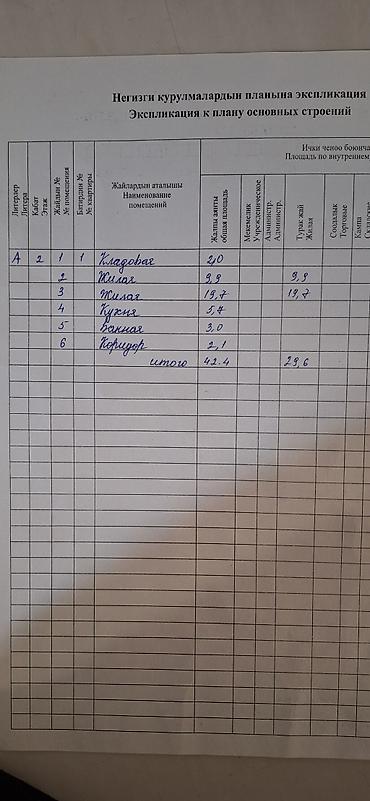 Негизги курулмалардын планына экспликация
Экспликация к плану основных строений
Литерлер
Литера
Кабат
Этаж
Жайдын №
№ помещения
Батирдин №
№ квартиры
Жайлардын аталышы
Наименование
помещений
Ички ченөө боюнча
Площадь по внутреннем
Жалпы аянты
общая площадь
Мекемелик
Учрежденическое
Администр.
Администр.
Турак жай
Жилая
Соодалык
Торговые
Кампа
А 2 1 1 Кладовая 2,0
2 Жилая 9,9 9,9
3 Жилая 19,7 19,7
4 Кухня 5,7
5 Ванная 3,0
6 Коридор 2,1
итого 42.4 29,6